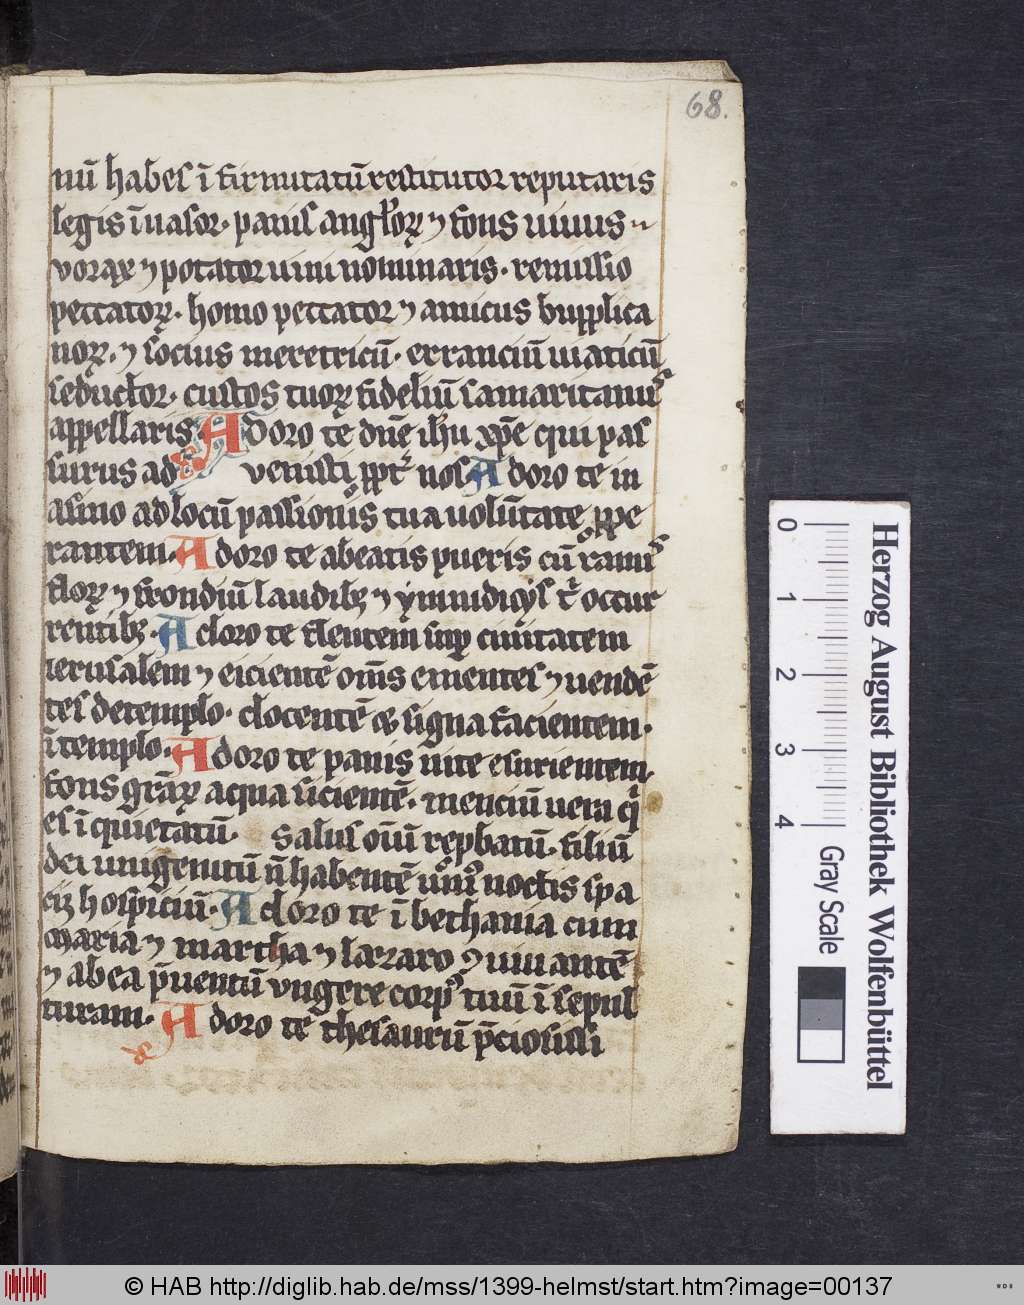 68.
nū habes ī firmitatū restitutor reputaris
legis īuasor. panis angloꝝ ⁊ fons uiuus
vorax ⁊ potator uini nominaris. remissio
peccatoꝝ. homo peccator ⁊ amicus bupplica
noꝝ. ⁊ socius meretricū. erranciū uiaticū
seductor. custos tuoꝝ fideliū samaritanus
appellaris. Adoro te dn̄e ih̄u xp̄e qui pas
surus ad uenisti ꝓpt̄ nos Adoro te in
asino ad locū passionis tua uolūtate ꝓpe
rantem. Adoro te a beatis pueris cū ramis
floꝝ ⁊ frondiū laudibꝫ ⁊ ymnidicis t̄ occur
rentibꝫ. Adoro te flentem suꝑ ciuitatem
ierusalem ⁊ eicientē om̄s ementes ⁊ uendē
tes de templo. docentē & signa facientem.
ī templo. Adoro te panis uite esurientem
fons gr̄aꝝ aqua sicientē. mentiū uera qͥ
es ī quietatū. Salus oīū reꝓbatū. filiū
dei unigenitū n̄ habentē unius noctis spa
ciū hospiciū. Adoro te ī bethania cum
maria ⁊ martha ⁊ lazaro ꝯuiuantē
⁊ ab ea p̄uentū vngere corpꝰ tuū ī sepul
turam. Adoro te thesaurū p̄ciosissi
0 1 2 3 4
Gray Scale
Herzog August Bibliothek Wolfenbüttel
© HAB http://diglib.hab.de/mss/1399-helmst/start.htm?image=00137